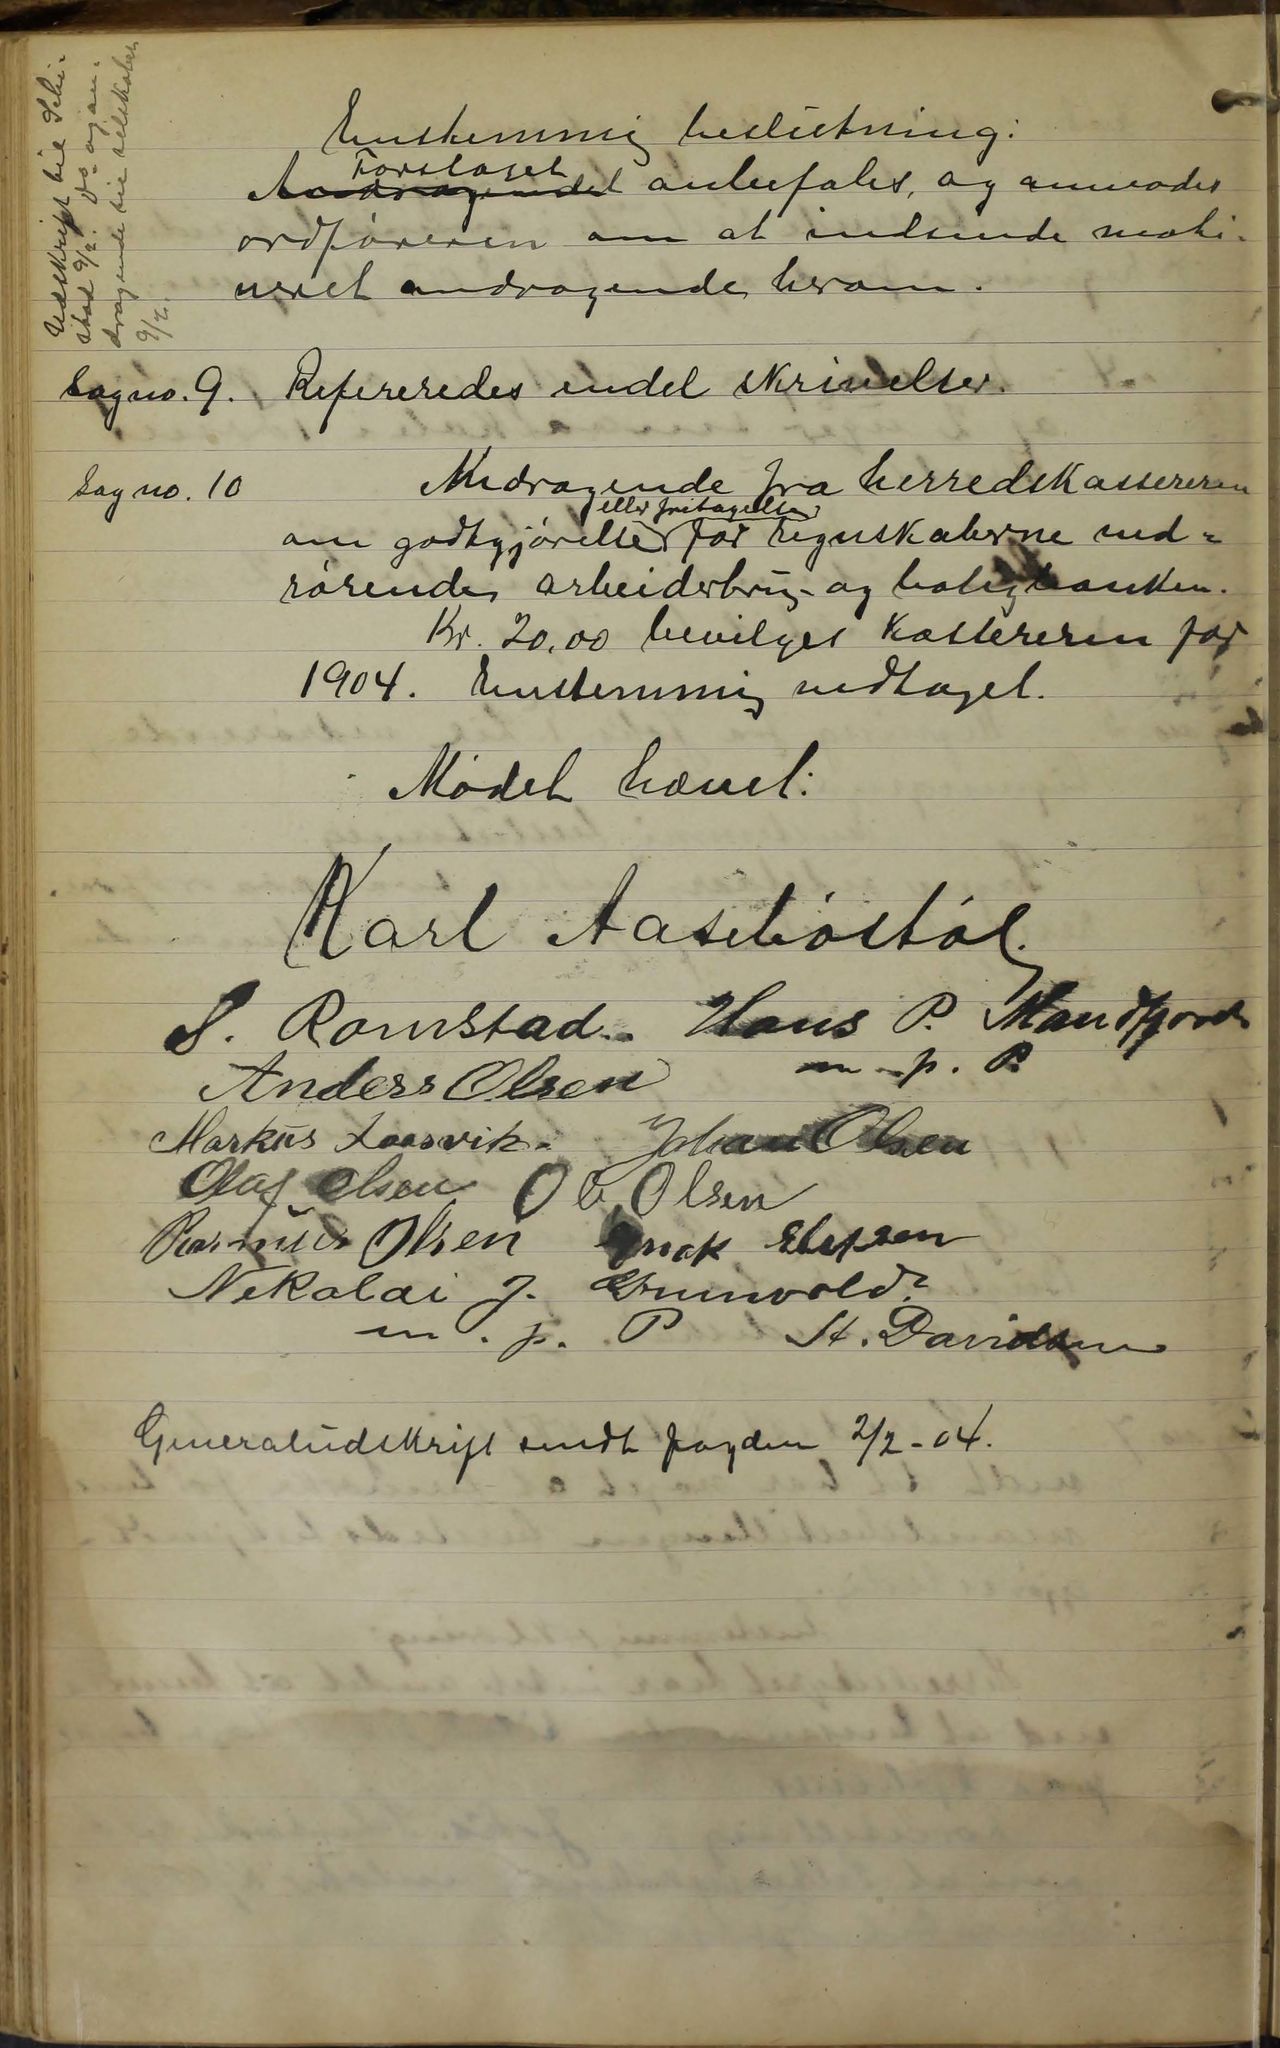 Udskrift til Schi-
stad 9/2. Do. og an-
dragende til selskabet
9/2.
Enstemmig beslutning:
Forslaget
Andragendet anbefales, og anmodes
ordføreren om at indsende moti-
veret andragende herom.
Sag no. 9. Refereredes endel skrivelser.
Sag no. 10 Andragende fra herredskassereren
eller fritagelse
om godtgjørelse for regnskaberne ved-
rørende arbeiderbrug- og boligbanken.
Kr. 20,00 bevilges kassereren for
1904. Enstemmig vedtaget.
Mødet hævet:
Karl Aasebøstøl
S. Romstad. Hans P. Mandfjord
m. p. P.
Anders Olsen
Markus Laasvik. Johan Olsen
Olaf Olsen Ole Olsen
Rasmus Olsen Enok Ellefsen
Nikolai J. Grunvold
m. p. P St. Davidsen
Generaludskrift sendt fogden 2/2-04.